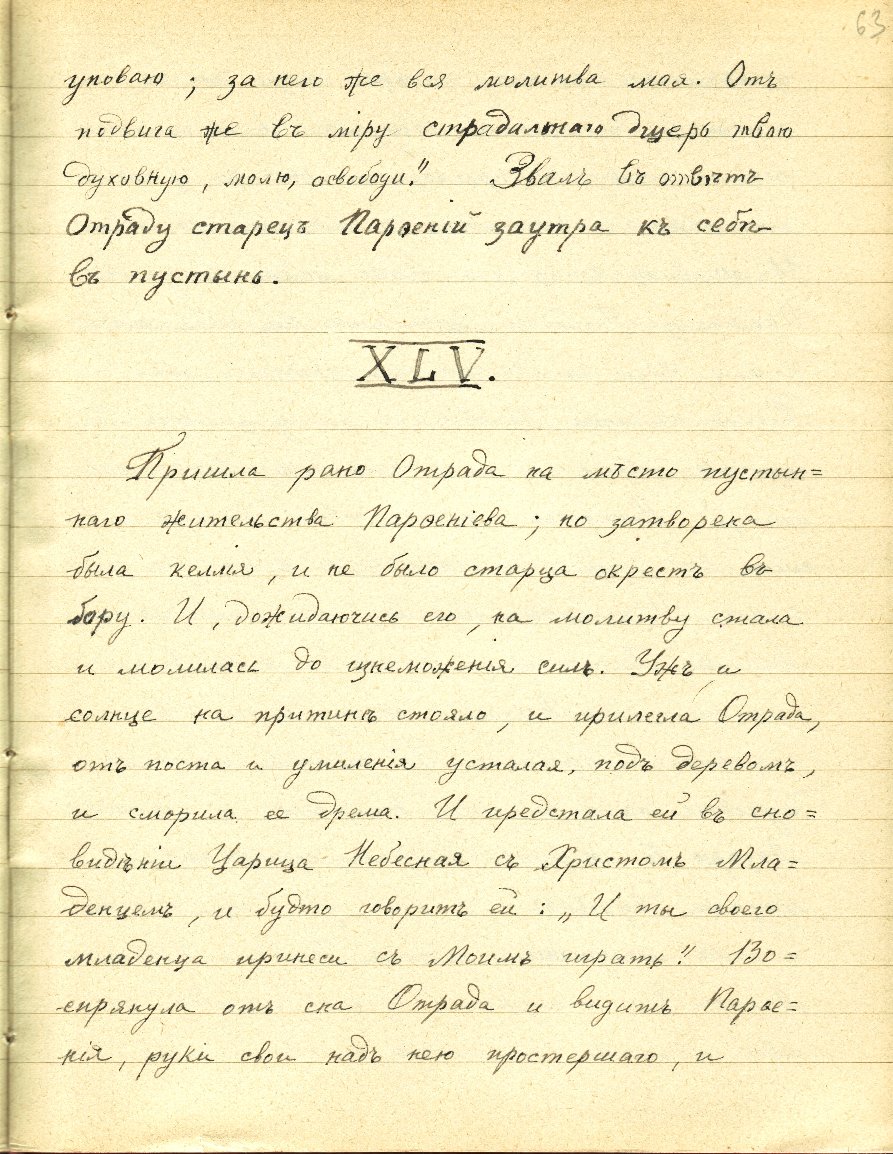 63
уповаю; за него же вся молитва моя. Отъ
подвига же въ міру страдальнаго дщерь твою
духовную, молю, освободи." Звалъ въ отвѣтъ
Отраду старецъ Парѳеній заутра къ себѣ
въ пустынь.
XLV.
Пришла рано Отрада на мѣсто пустын=
наго жительства Парѳеніева; но затворена
была келлія, и не было старца окрестъ въ
бору. И, дожидаючись его, на молитву стала
и молилась до изнеможенія силъ. Ужъ и
солнце на притинѣ стояло, и прилегла Отрада,
отъ поста и умиленія усталая, подъ деревомъ,
и сморила ее дрема. И предстала ей въ сно=
видѣніи Царица Небесная съ Христомъ Мла=
денцемъ, и будто говоритъ ей: „И ты своего
младенца принеси съ Моимъ играть". Во=
спрянула отъ сна Отрада и видитъ Парѳе=
нія, руки свои надъ нею простершаго, и